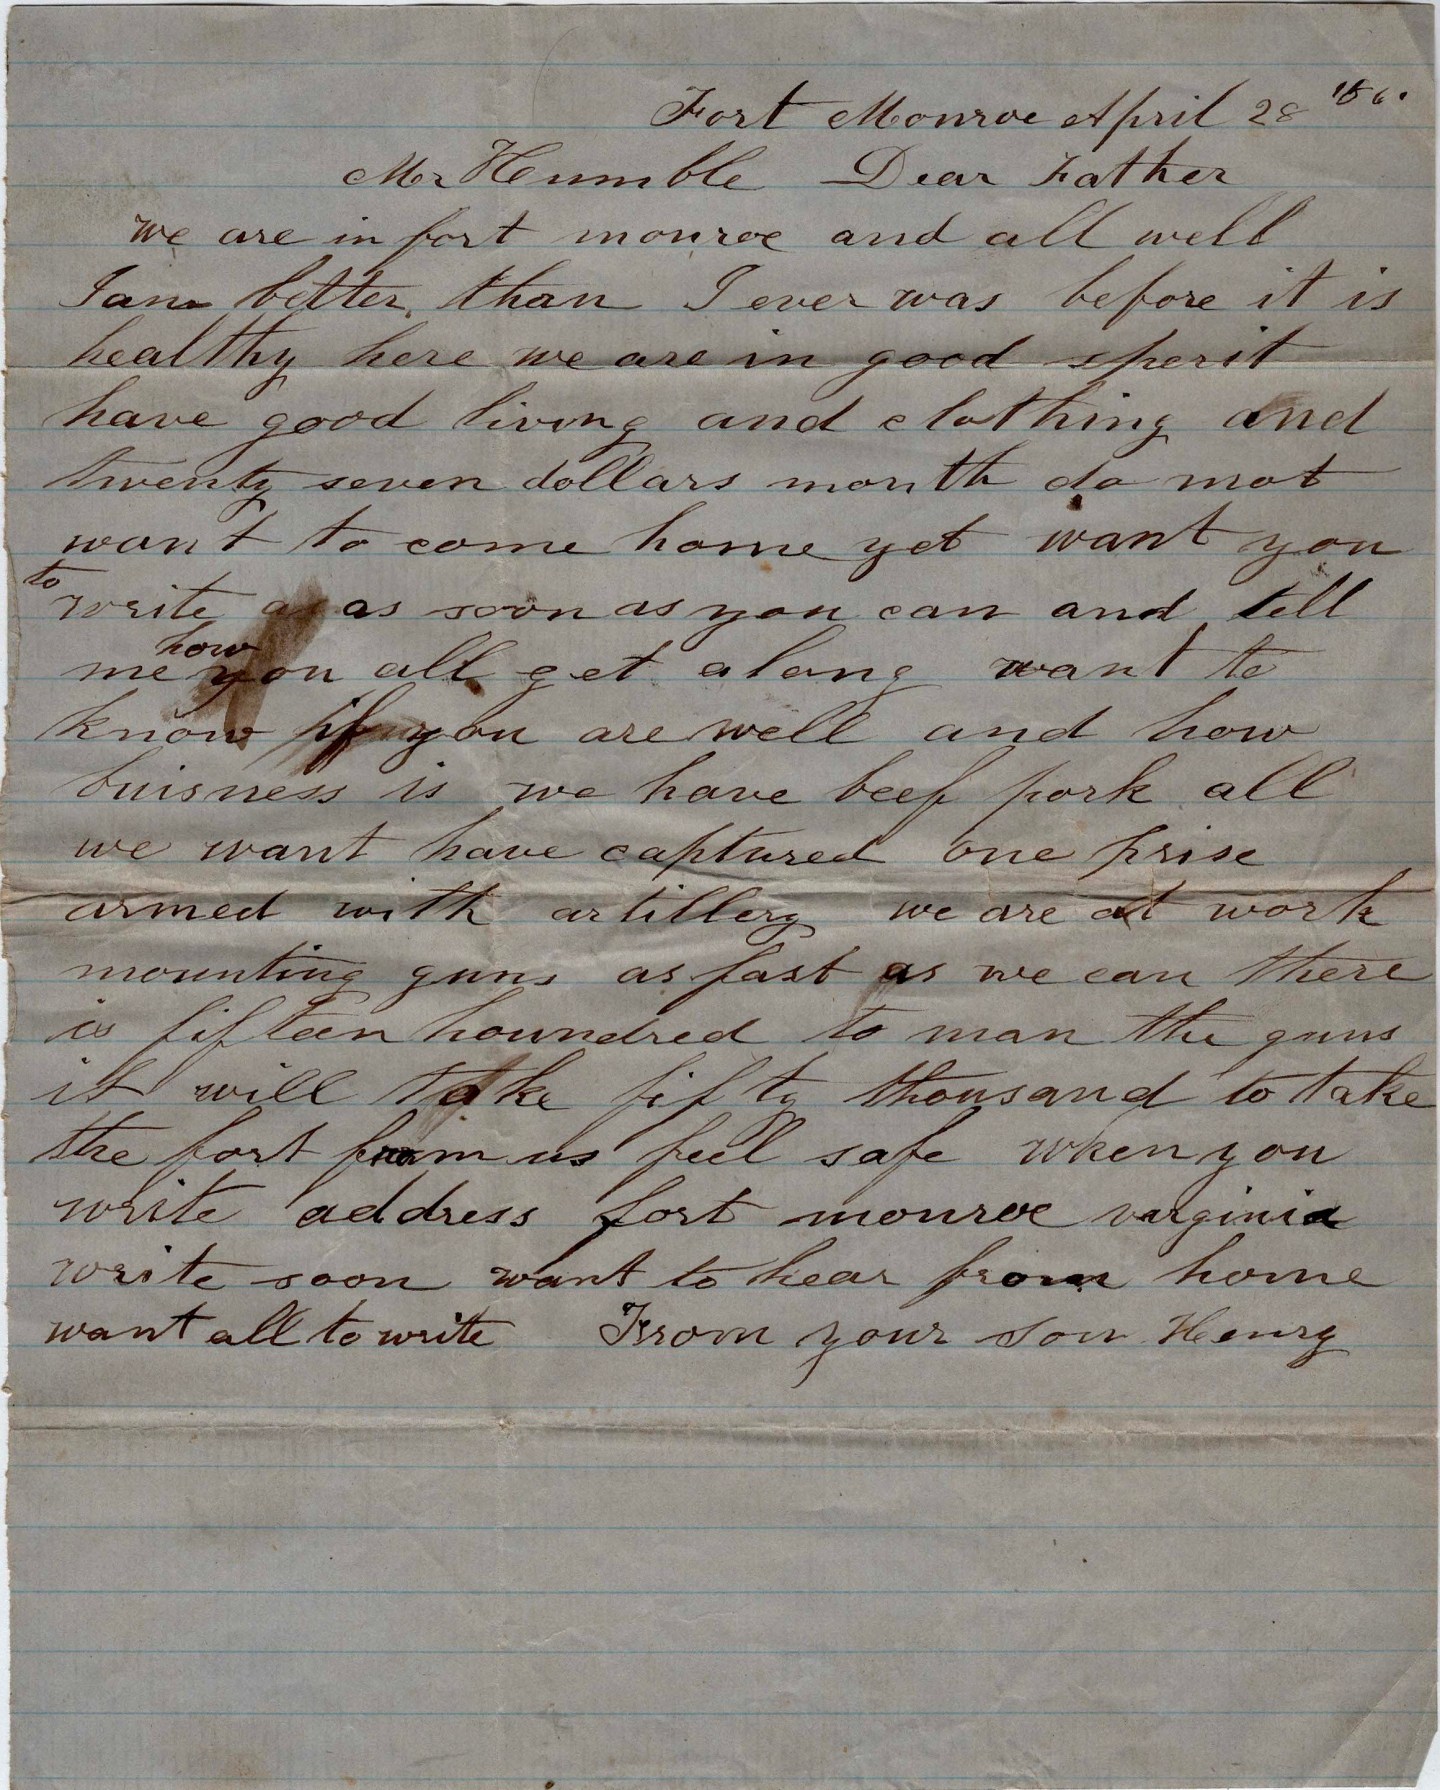 Fort Monroe April 28
Mr Humble Dear Father
we are in fort monroe and all well
I am better than I ever was before it is
healthy here we are in good sperit
have good living and clothing and
twenty seven dollars month do not
want to come home yet want you
to
write as as soon as you can and tell
how
me you all get along want to
know if you are well and how
buisness is we have beef pork all
we want have captured one prise
armed with artillery we are at work
mounting guns as fast as we can there
is fifteen houndred to man the guns
it will take fifty thousand to take
the fort from us feel safe when you
write address fort monroe virginia
write soon want to hear from home
want all to write From your son Henry